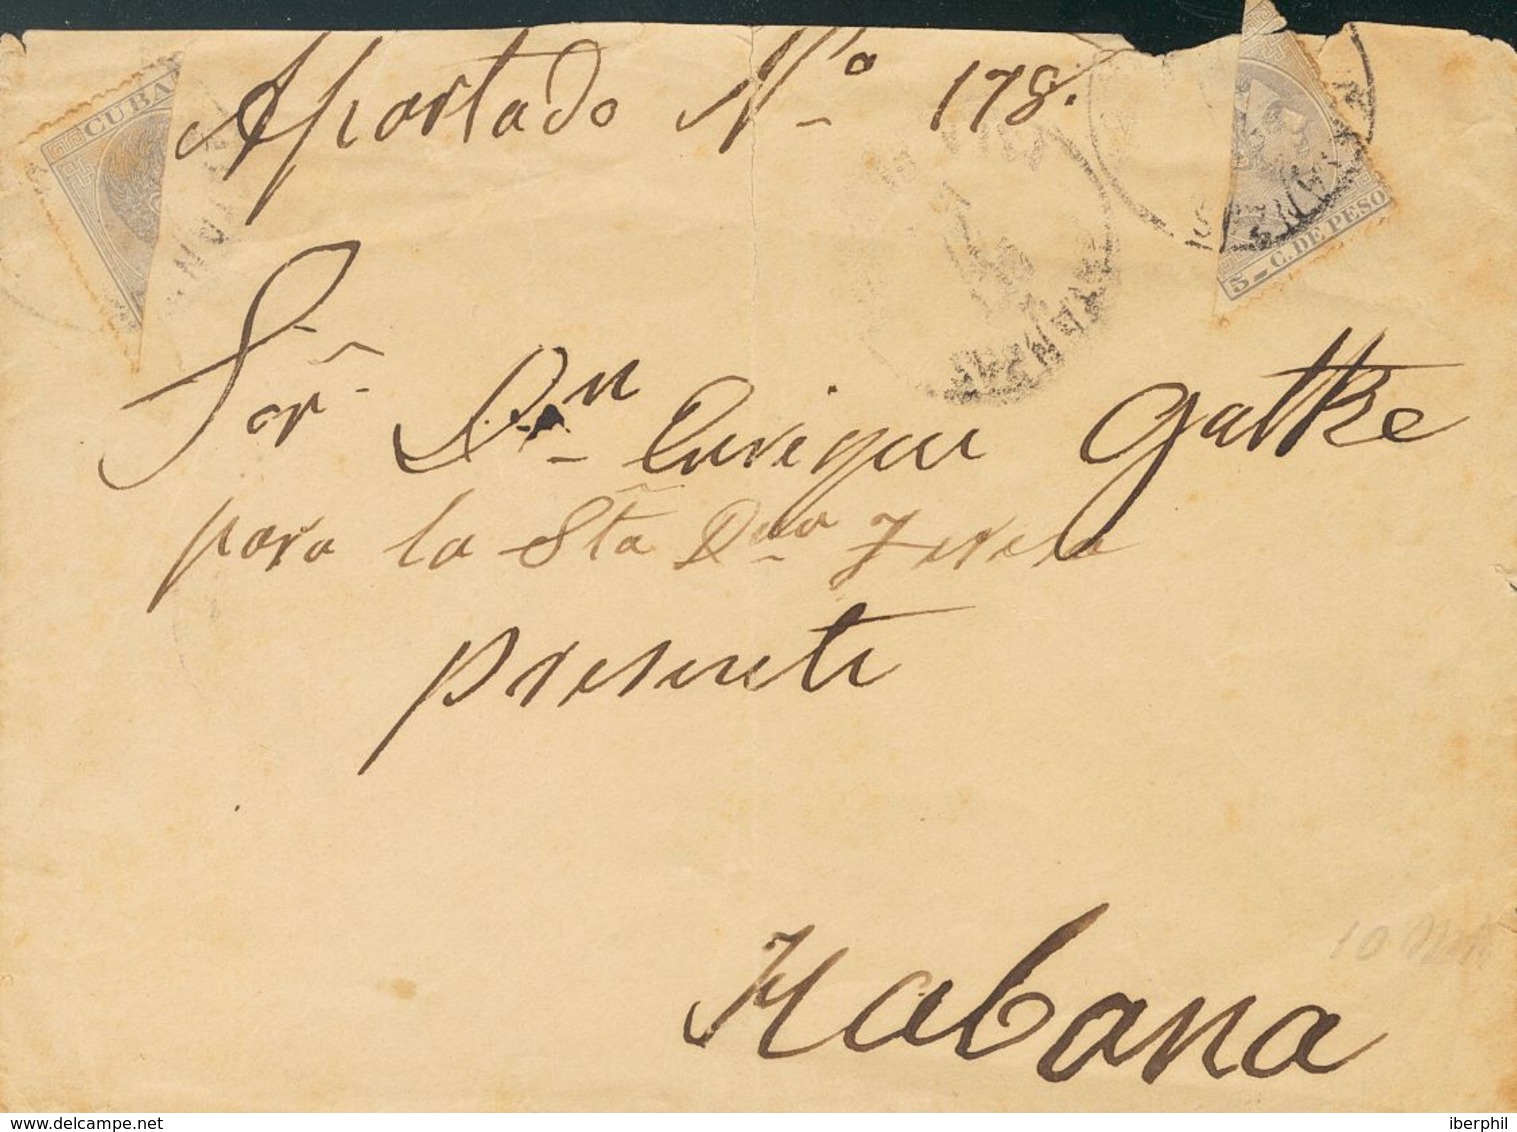 Apartado Nº 178.
CUBA
5 - C. DE PESO
HABANA
Sor. Dn. Enrique Gatke
para la Sta Dña Teresa
presente
Habana
delcampe.net
iberphil